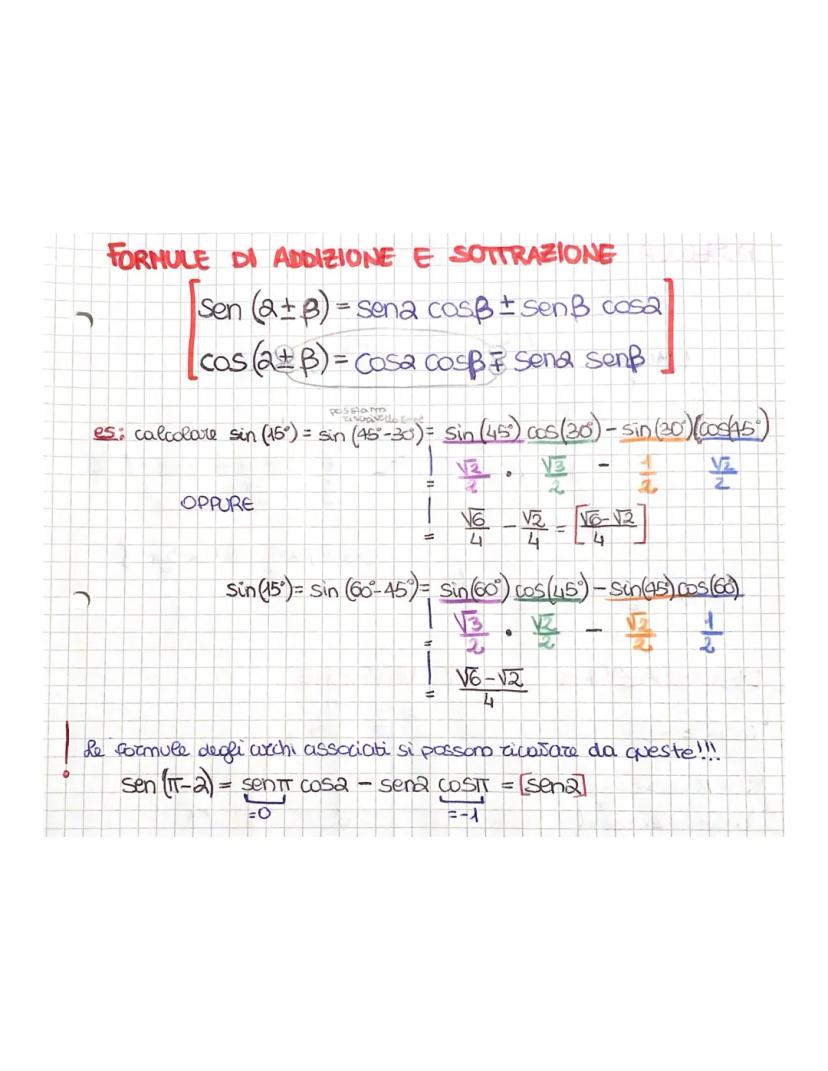 FORMULE DI ADDIZIONE E SOTTRAZIONE
sen (α ± β) = senα cosβ ± senβ cosα
cos (α ± β) = cosα cosβ ∓ senα senβ
possiamo
es: calcolare sin (15°) = sin (45°-30°) = sin (45°) cos(30°) - sin (30°)(cos45°)
= √2/2 · √3/2 - 1/2 √2/2
OPPURE
= √6/4 - √2/4 = [√6-√2/4]
sin(15°) = sin (60°-45°) = sin(60°) cos(45°) - sin(45) cos(60)
= √3/2 · √2/2 - √2/2 1/2
= √6-√2/4
! Le formule degli archi associati si possono ricavare da queste!!!
sen (π-α) = senπ cosα - senα cosπ = [senα]
=0 =-1